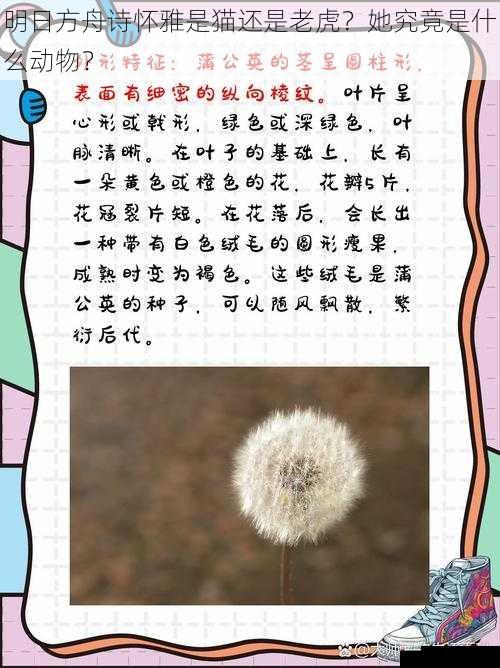 明日方舟诗怀雅是猫还是老虎？她究竟是什
么动物？
形特征：蒲公英的茎呈圆柱形，
表面有细密的纵向棱纹。叶片呈
心形或戟形，绿色或深绿色，叶
脉清晰。在叶子的基础上，长有
一朵黄色或橙色的花，花瓣5片，
花冠裂片短。在花落后，会长出
一种带有白色绒毛的圆形瘦果，
成熟时变为褐色。这些绒毛是蒲
公英的种子，可以随风飘散，繁
衍后代。